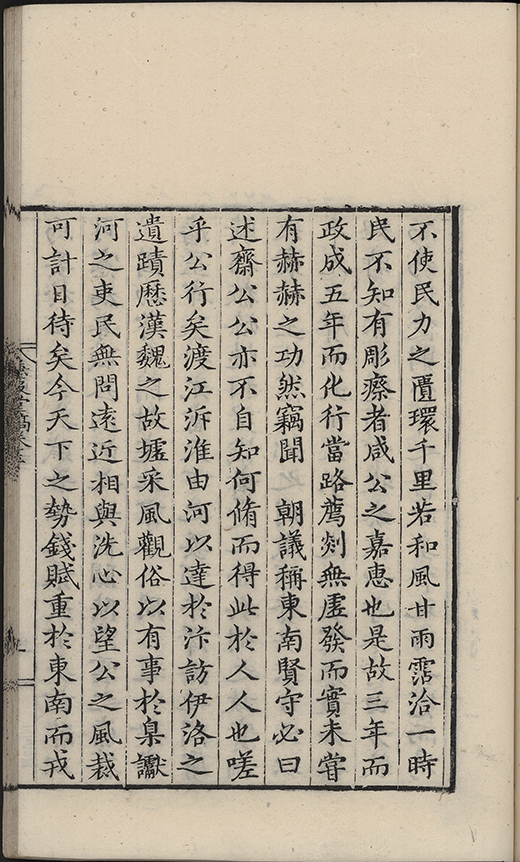 不使民力之匱環千里若和風甘雨霑洽一時
民不知有彫瘵者咸公之嘉惠也是故三年而
政成五年而化行當路薦剡無虛發而實未甞
有赫赫之功然竊聞　朝議稱東南賢守必曰
述齋公公亦不自知何脩而得此於人人也嗟
乎公行矣渡江泝淮由河以達於汴訪伊洛之
遺蹟歷漢魏之故墟采風觀俗以有事於臬讞
河之吏民無問遠近相與洗心以望公之風裁
可計日待矣今天下之勢錢賦重於東南而戎